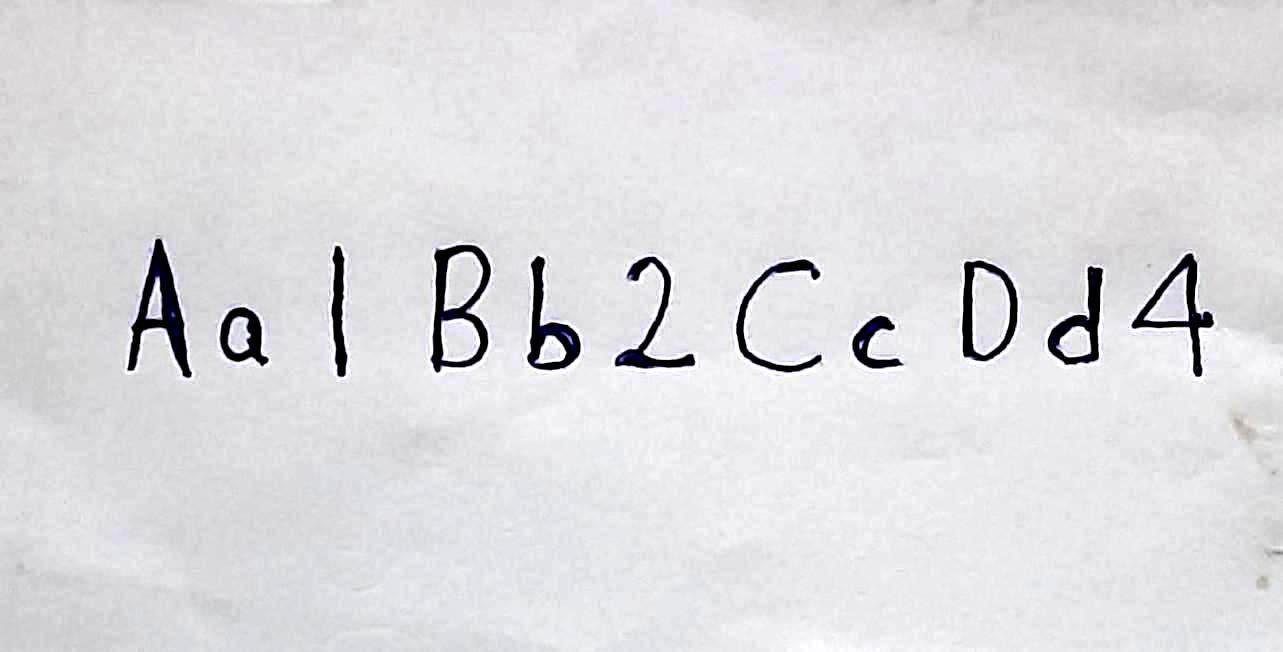 A a 1 B b 2 C c D d 4